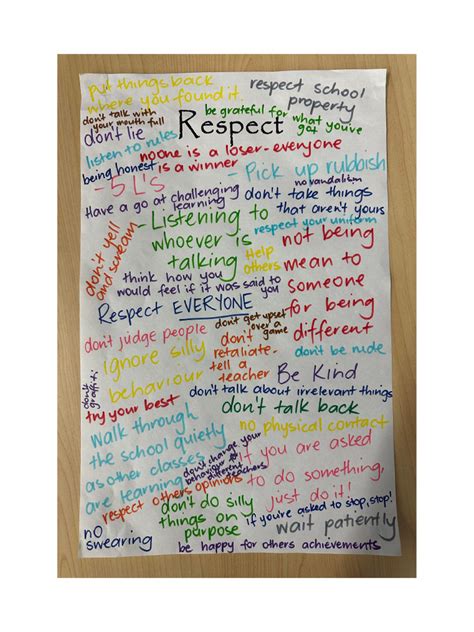 put things back
where you found it.
respect school
property
don't talk with
your mouth full
be grateful for what
you've got
Respect
don't lie
listen to rules
no one is a loser - everyone
is a winner
being honest
- Pick up rubbish
- 5 L's
no vandalism
Have a go at challenging
learning
don't take things
that aren't yours
- Listening to
whoever is
talking
respect your uniform
don't yell
and scream
not being
mean to
someone
for being
different
Help
others
think how you
would feel if it was said to
you
Respect EVERYONE
don't get upset
over a
game
don't judge people
don't
retaliate -
tell a
teacher
don't be rude
ignore silly
behaviour
Be Kind
don't
graffiti
don't talk about irrelevant things
try your best
don't talk back
no physical contact
Walk through
the school quietly
as other classes
are learning
don't change your
behaviour
different
teachers
If you are asked
to do something,
just do it!
respect others opinions
don't do silly
things on
purpose
if you're asked to stop, stop!
wait patiently
no
swearing
be happy for others achievements